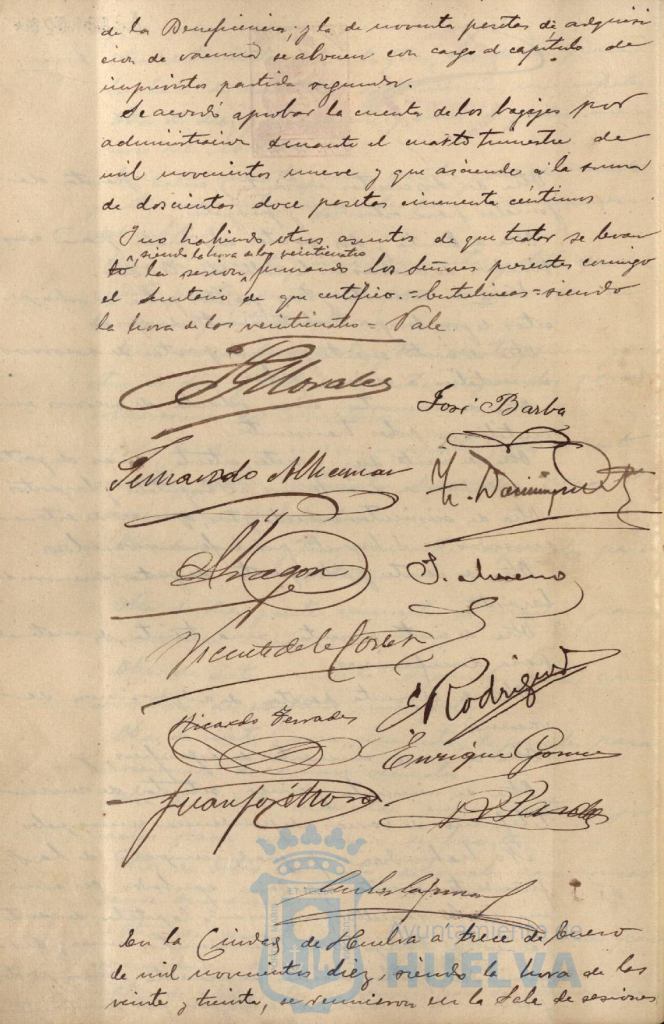 de la Beneficencia, y la de noventa pesetas de adquisi
cion de vacuna se abonen con cargo al capitulo de
imprevistos partida segunda.
Se acordó aprobar la cuenta de los bagajes por
administracion durante el cuarto trimestre de
mil novecientos nueve y que asciende a la suma
de doscientas doce pesetas cincuenta céntimos
Y no habiendo otros asuntos de que tratar se levan
siendo la hora de las veinticuatro
tó la sesion, firmando los Señores presentes conmigo
el Secretario de que certifico. = Entrelineas = siendo
la hora de las veinticuatro = Vale
Morales
José Barba
Fernando
F. Dominguez
Aragon
J. Moreno
Vicente de la Corte
E Rodriguez
Ricardo Terrades
Enrique Gomez
Juan José Mora
En la Ciudad de Huelva a trece de Enero
Ayuntamiento de
de mil novecientos diez, siendo la hora de las
HUELVA
veinte y treinta, se reunieron en la Sala de sesiones